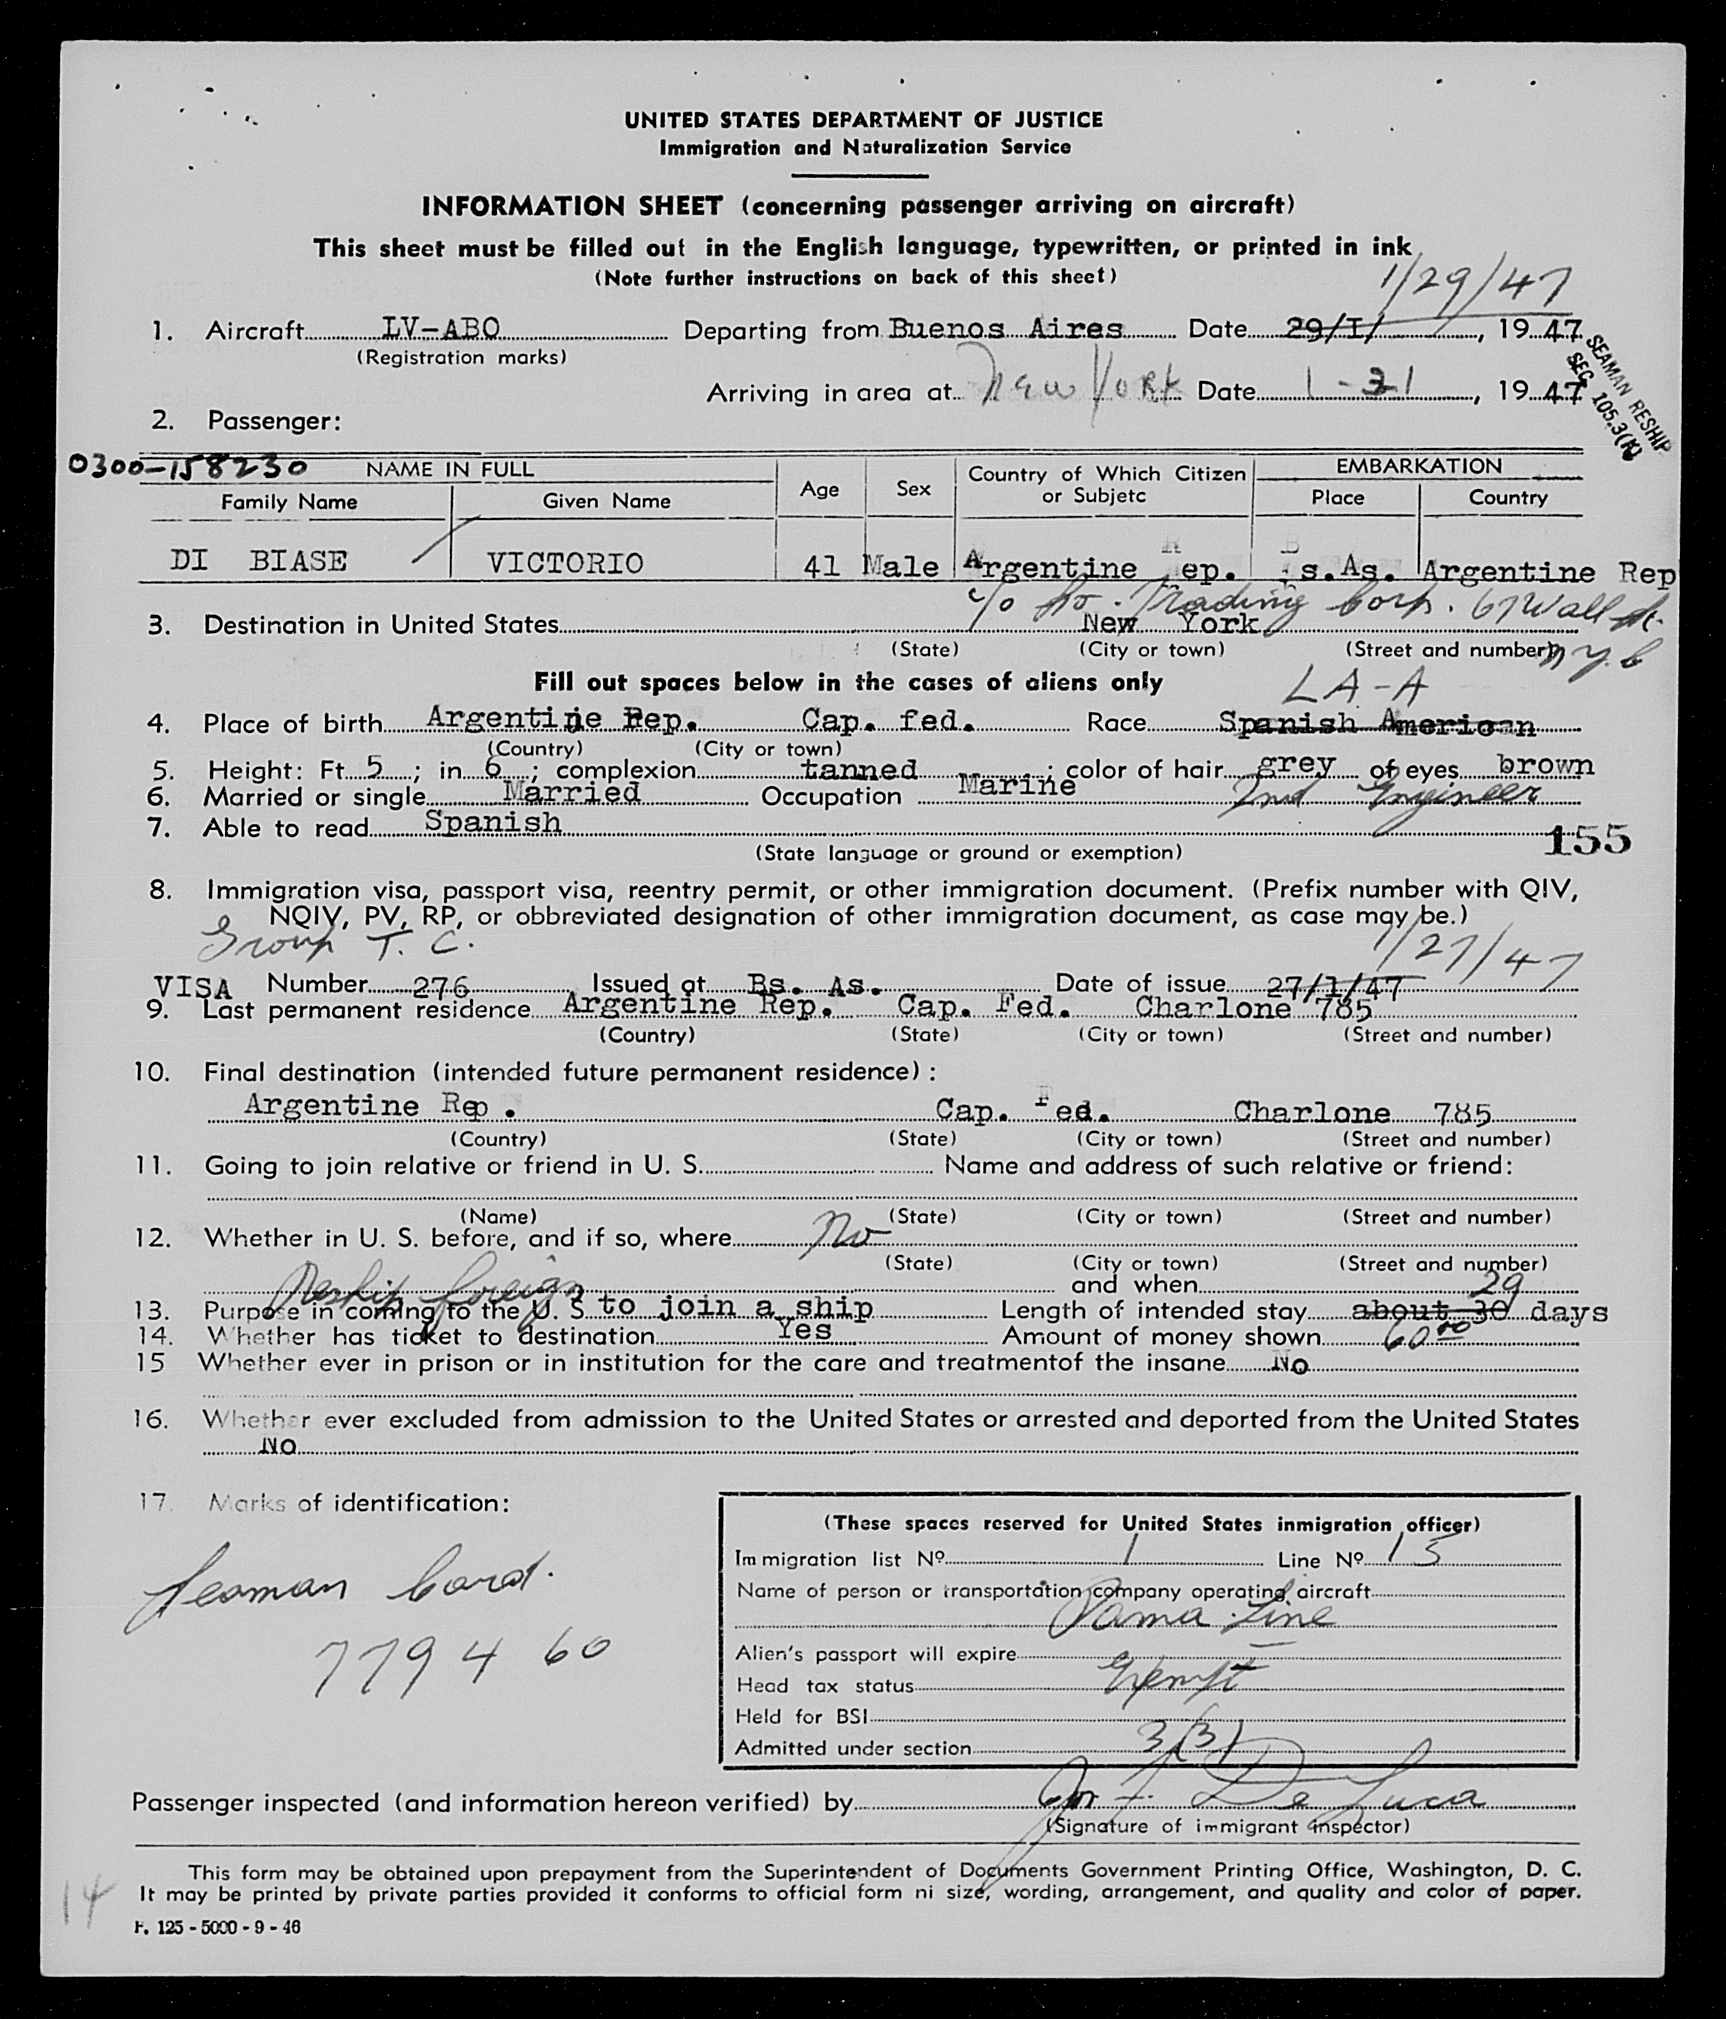 UNITED STATES DEPARTMENT OF JUSTICE
Immigration and Naturalization Service
INFORMATION SHEET (concerning passenger arriving on aircraft)
This sheet must be filled out in the English language, typewritten, or printed in ink
(Note further instructions on back of this sheet)
1/29/47
1. Aircraft LV-ABO Departing from Buenos Aires Date 29/I/ , 19 47
(Registration marks)
SEAMAN RESHIP
SEC 105.3(K)
Arriving in area at New York Date 1-31 , 19 47
2. Passenger:
0300-158230 NAME IN FULL Age Sex Country of Which Citizen or Subjetc EMBARKATION
Family Name Given Name Place Country
DI BIASE VICTORIO 41 Male Argentine Rep. Bs.As. Argentine Rep
c/o Trading Corp. 67 Wall St.
3. Destination in United States New York
(State) (City or town) (Street and number) N Y C
Fill out spaces below in the cases of aliens only
LA-A
4. Place of birth Argentine Rep. Cap. fed. Race Spanish American
(Country) (City or town)
5. Height: Ft. 5 ; in. 6 ; complexion tanned ; color of hair grey of eyes brown
6. Married or single Married Occupation Marine 2nd Engineer
7. Able to read Spanish
155
(State language or ground or exemption)
8. Immigration visa, passport visa, reentry permit, or other immigration document. (Prefix number with QIV,
NQIV, PV, RP, or obbreviated designation of other immigration document, as case may be.)
Group T. C.
1/27/47
VISA Number 276 Issued at Bs. As. Date of issue 27/1/47
9. Last permanent residence Argentine Rep. Cap. Fed. Charlone 785
(Country) (State) (City or town) (Street and number)
10. Final destination (intended future permanent residece) :
Argentine Rep. Cap. Fed. Charlone 785
(Country) (State) (City or town) (Street and number)
11. Going to join relative or friend in U. S. Name and address of such relative or friend:
(Name) (State) (City or town) (Street and number)
12. Whether in U. S. before, and if so, where No
(State) (City or town) (Street and number)
Reship foreign and when 29
13. Purpose in coming to the U. S. to join a ship Length of intended stay about 30 days
14. Whether has ticket to destination Yes Amount of money shown 60 00
15 Whether ever in prison or in institution for the care and treatmentof the insane No
16. Whether ever excluded from admission to the United States or arrested and deported from the United States
No
17. Marks of identification:
Seaman Card.
779460
(These spaces reserved for United States inmigration officer)
Immigration list Nº 1 Line Nº 15
Name of person or transportation company operating aircraft
Fama Line
Alien's passport will expire
Head tax status Exempt
Held for BSI
Admitted under section 3(3)
Passenger inspected (and information hereon verified) by De Luca
(Signature of immigrant inspector)
This form may be obtained upon prepayment from the Superintendent of Documents Government Printing Office, Washington, D. C.
14 It may be printed by private parties provided it conforms to official form ni size, wording, arrangement, and quality and color of paper.
F. 125 - 5000 - 9 - 46